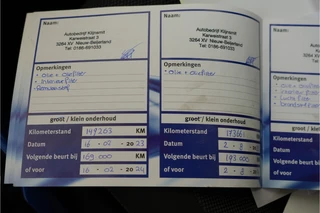 Naam:
Autobedrijf Kliprentl
Karweistraat 3
3264 XV Nieuw-Beijerland
Tel: 0186-691033
Opmerkingen
- Olie + oliefilter
- Interieurfilter
groot / klein onderhoud
Kilometerstand 149263 KM
Datum 16 - 02 - 2023
Volgende beurt bij 169000 KM
of voor 16 - 02 - 2024
Naam:
Autobedrijf
Karweistraat 3
3264 XV Nieuw-Beijerland
Tel: 0186-691033
Opmerkingen
- Olie + oliefilter
groot / klein onderhoud
Kilometerstand
Datum 2 - 8 -
Volgende beurt bij 193000
of voor 2 - 8 -
Naam:
Opmerkingen
Kilometerstand
Datum
Volgende beurt
of voor